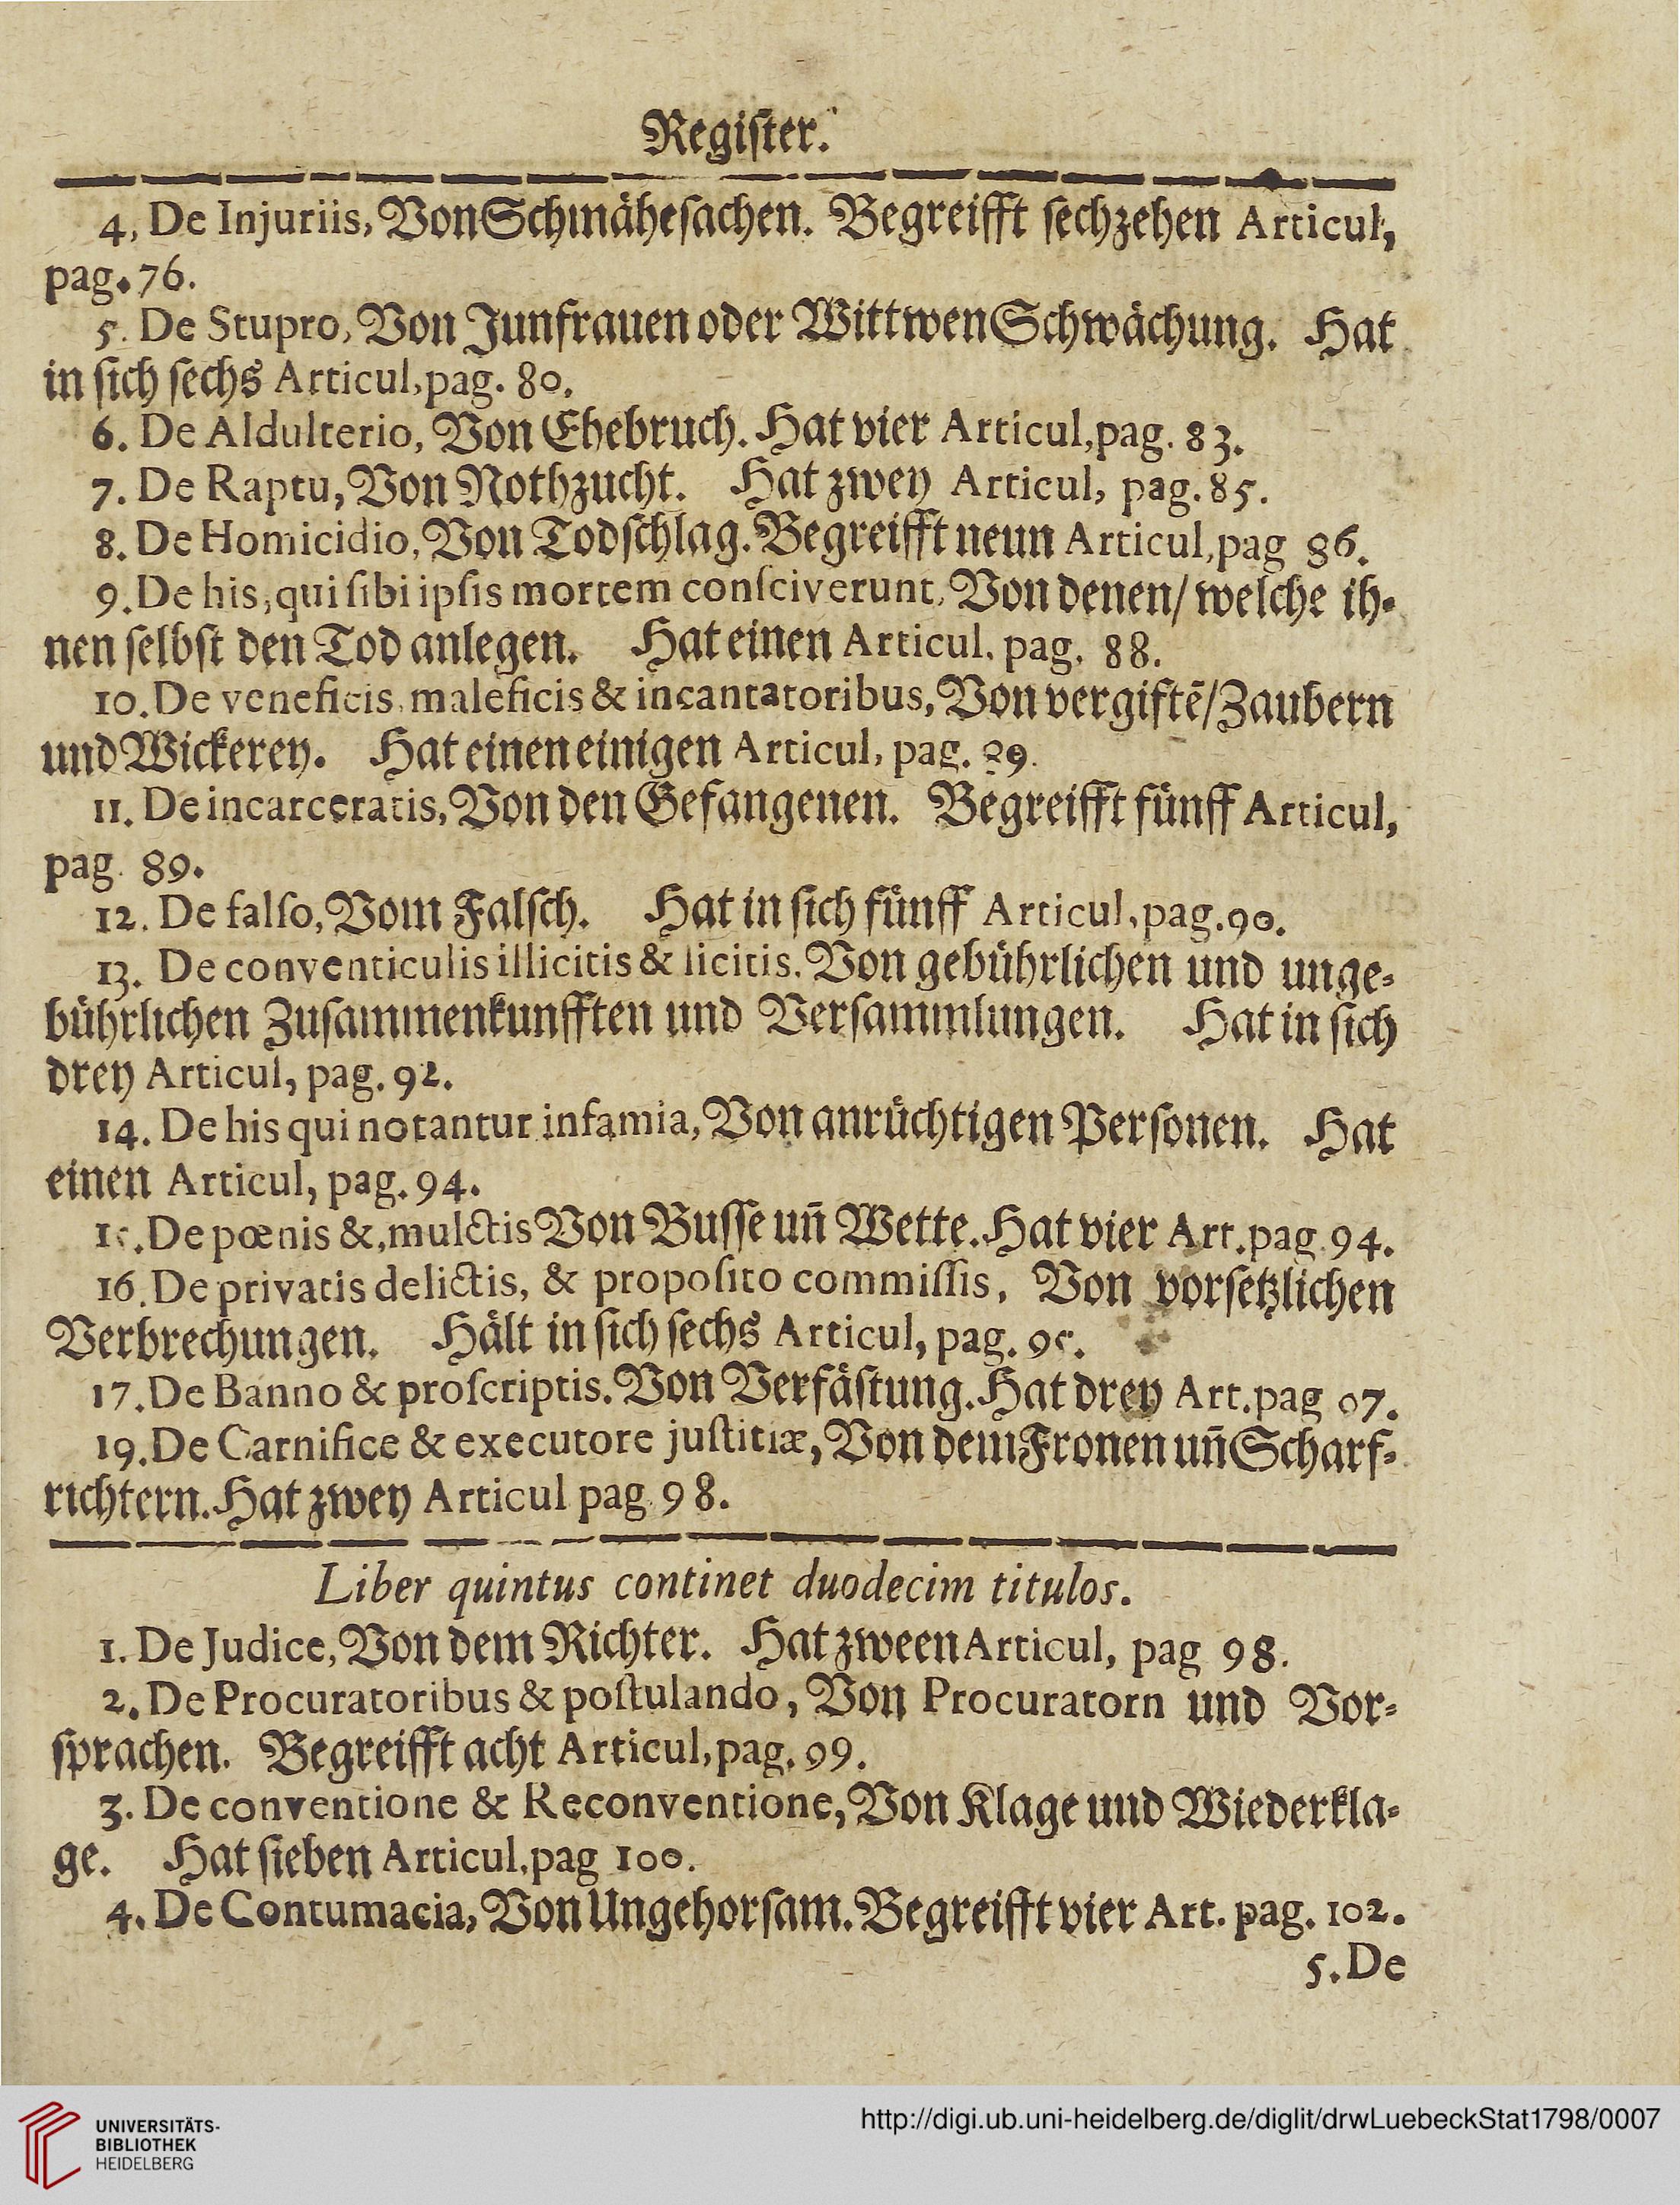 Regiſter.
4, De Injuriis, Von Schmåheſachen. Begreifft ſechzehen Articul,
pag. 76.
5. De Stupro, Von Junfrauen oder Wittwen Schwåchung. Hat
in ſich ſechs Articul, pag. 80.
6. De Aldulterio, Von Ehebruch. Hat vier Articul, pag. 83.
7. De Raptu, Von Nothzucht. Hat zwey Articul, pag. 85.
8. De Homicidio, Von Todſchlag. Begreifft neun Articul, pag 86.
9. De his, qui ſibi ipſis mortem conſciverunt, Von denen/ welche ih-
nen ſelbſt den Tod anlegen. Hat einen Articul. pag. 88.
10. De veneficis, maleficis & incantatoribus, Von vergiftē/ Zaubern
und Wickerey. Hat einen einigen Articul, pag. 89.
11. De incarceratis, Von den Gefangenen. Begreifft fünff Articul,
pag. 89.
12. De falſo, Vom Falſch. Hat in ſich fünff Articul, pag. 90.
13. De conventiculis illicitis & licitis. Von gebührlichen und unge-
bührlichen Zuſammenkunfften und Verſammlungen. Hat in ſich
drey Articul, pag. 92.
14. De his qui notantur infamia, Von anrüchtigen Perſonen. Hat
einen Articul, pag. 94.
15. De pœnis &, mulctis Von Buſſe uñ Wette. Hat vier Art. pag. 94.
16. De privatis delictis, & propoſito commiſſis, Von vorſetzlichen
Verbrechungen. Hålt in ſich ſechs Articul, pag. 95.
17. De Banno & proſcriptis. Von Verfåſtung. Hat drey Art. pag 97.
19. De Carnifice & executore juſtitiæ, Von dem Fronen uñ Scharf-
richtern. Hat zwey Articul pag. 98.
Liber quintus continet duodecim titulos.
1. De Judice, Von dem Richter. Hat zween Articul, pag 98.
2. De Procuratoribus & poſtulando, Von Procuratorn und Vor-
ſprachen. Begreifft acht Articul, pag. 99.
3. De conventione & Reconventione, Von Klage und Wiederkla-
ge. Hat ſieben Articul, pag 100.
4. De Contumacia, Von Ungehorſam. Begreifft vier Art. pag. 102.
5. De
UNIVERSITÄTS-
BIBLIOTHEK
HEIDELBERG
http://digi.ub.uni-heidelberg.de/diglit/drwLuebeckStat1798/0007